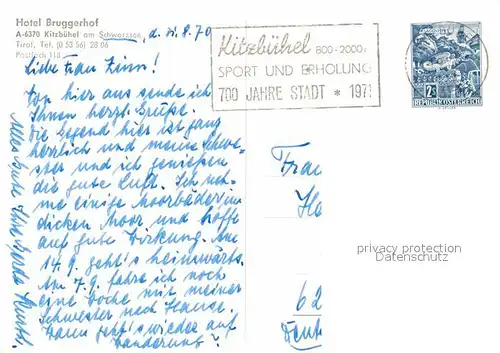 Hotel Bruggerhof
A-6370 Kitzbühel am Schwarzsee
Tirol, Tel. (0 53 56) 28 06
Postfach 118
d. 31.8.70
Kitzbühel 800-2000m
SPORT UND ERHOLUNG
700 JAHRE STADT * 1971
2S
REPUBLIK ÖSTERREICH
Liebe Frau Zinn!
Von hier aus sende ich
Ihnen herzl. Grüße.
Die Gegend hier ist ganz
herrlich und meine Schwe-
ster und ich genießen
die gute Luft. Ich neh-
me einige Moorbäder im
dicken Moor und hoffe
auf gute Wirkung. Am
14.9. geht's heimwärts.
Am 7.9. fahre ich noch
eine Woche mit meiner
Schwester nach Hause.
Wann geht's wieder auf
Wanderung?
Alles Gute Ihre Gerda
Frau
62
privacy protection
Datenschutz